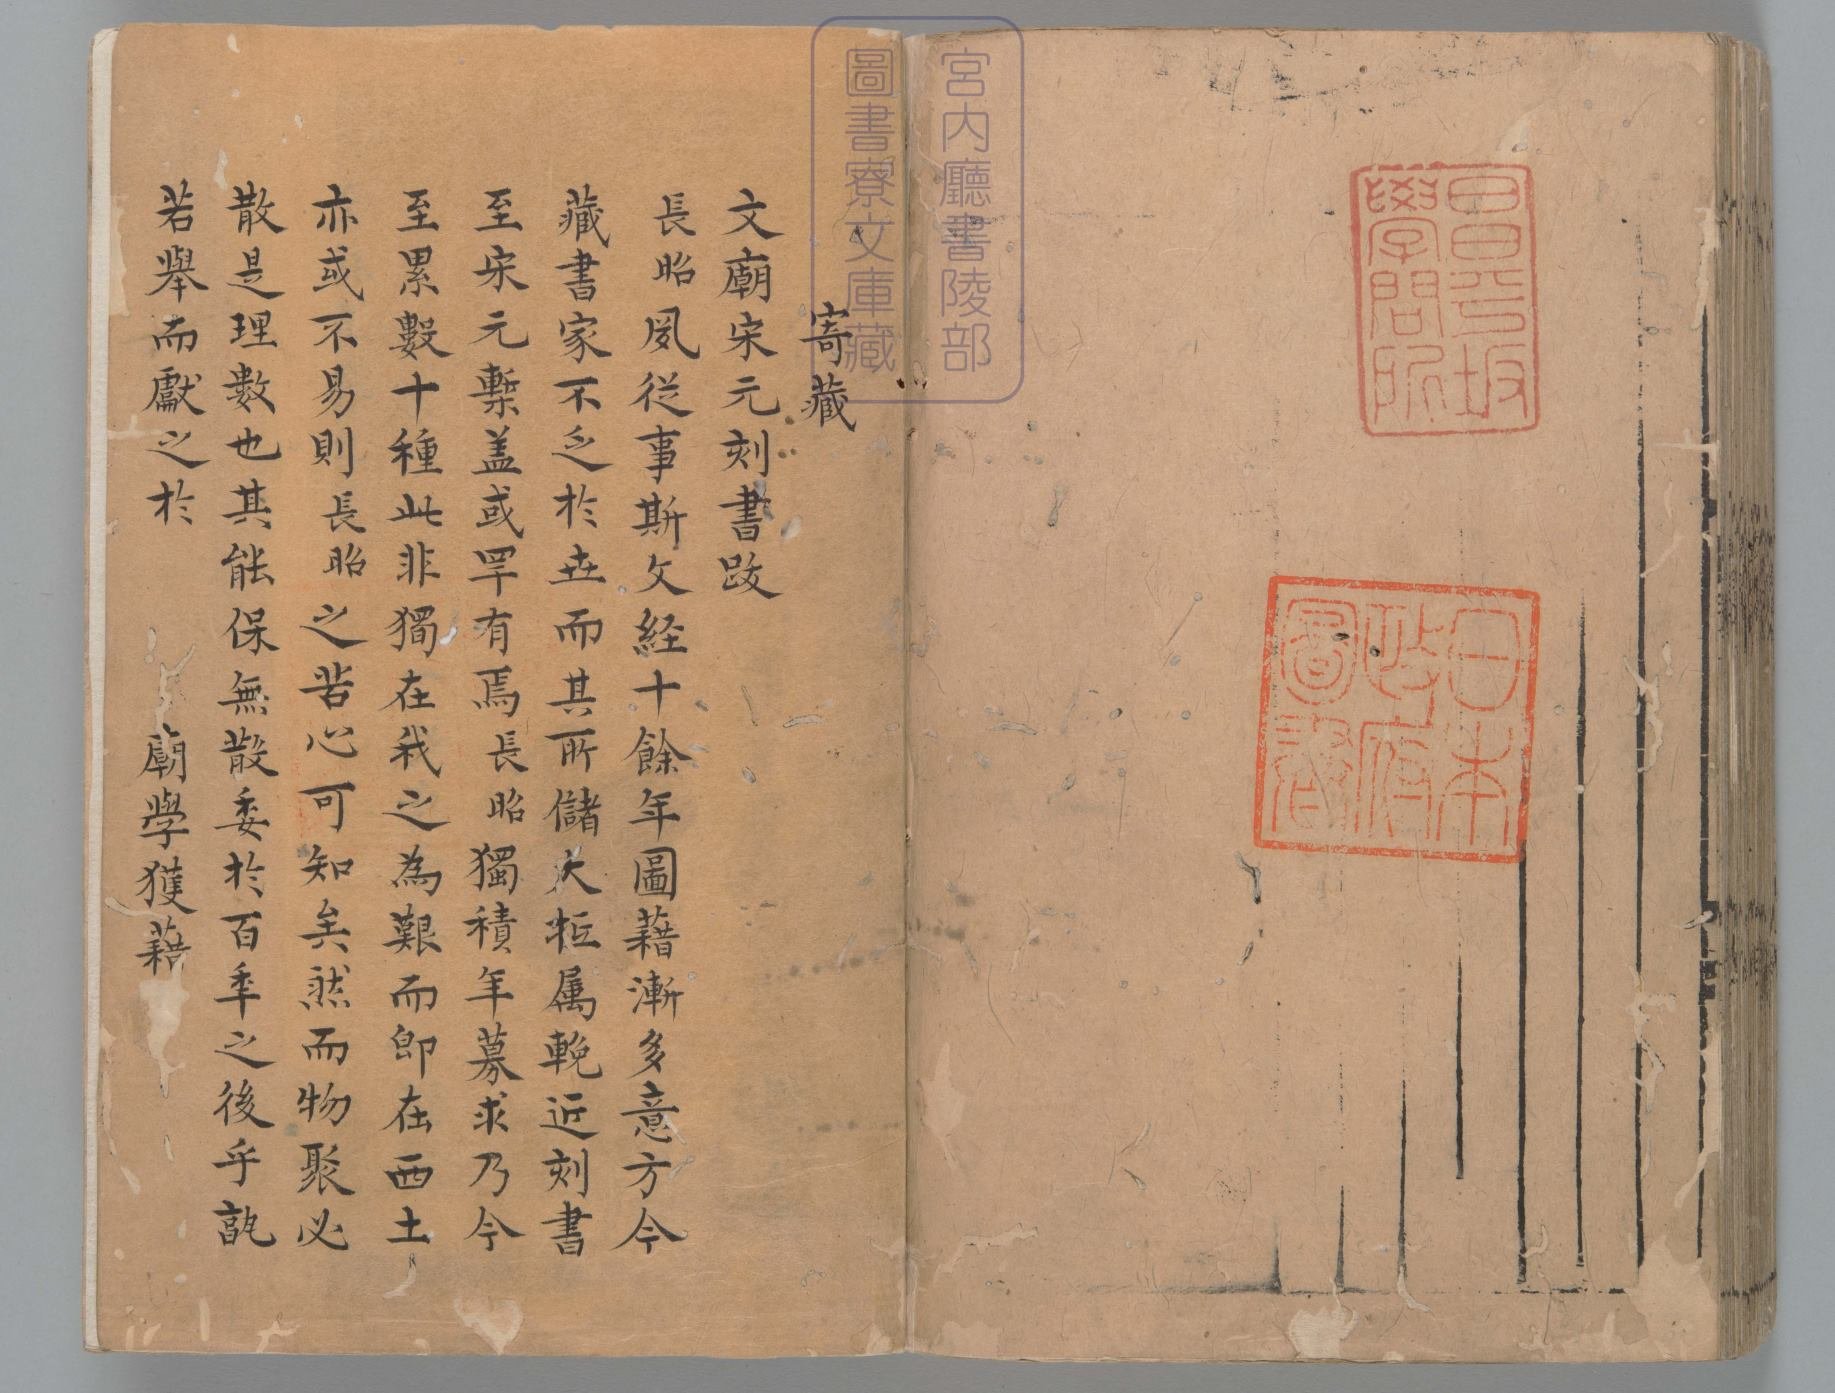 昌平坂
學問所
日本
政府
圖書
宮内廳書陵部
圖書寮文庫藏
寄藏
文廟宋元刻書跋
長昭夙從事斯文經十餘年圖藉漸多意方今
藏書家不乏於世而其所儲大抵屬輓近刻書
至宋元槧盖或罕有焉長昭獨積年募求乃今
至累數十種此非獨在我之為艱而即在西土
亦或不易則長昭之苦心可知矣然而物聚必
散是理數也其能保無散委於百年之後乎孰
若舉而獻之於
廟學獲藉